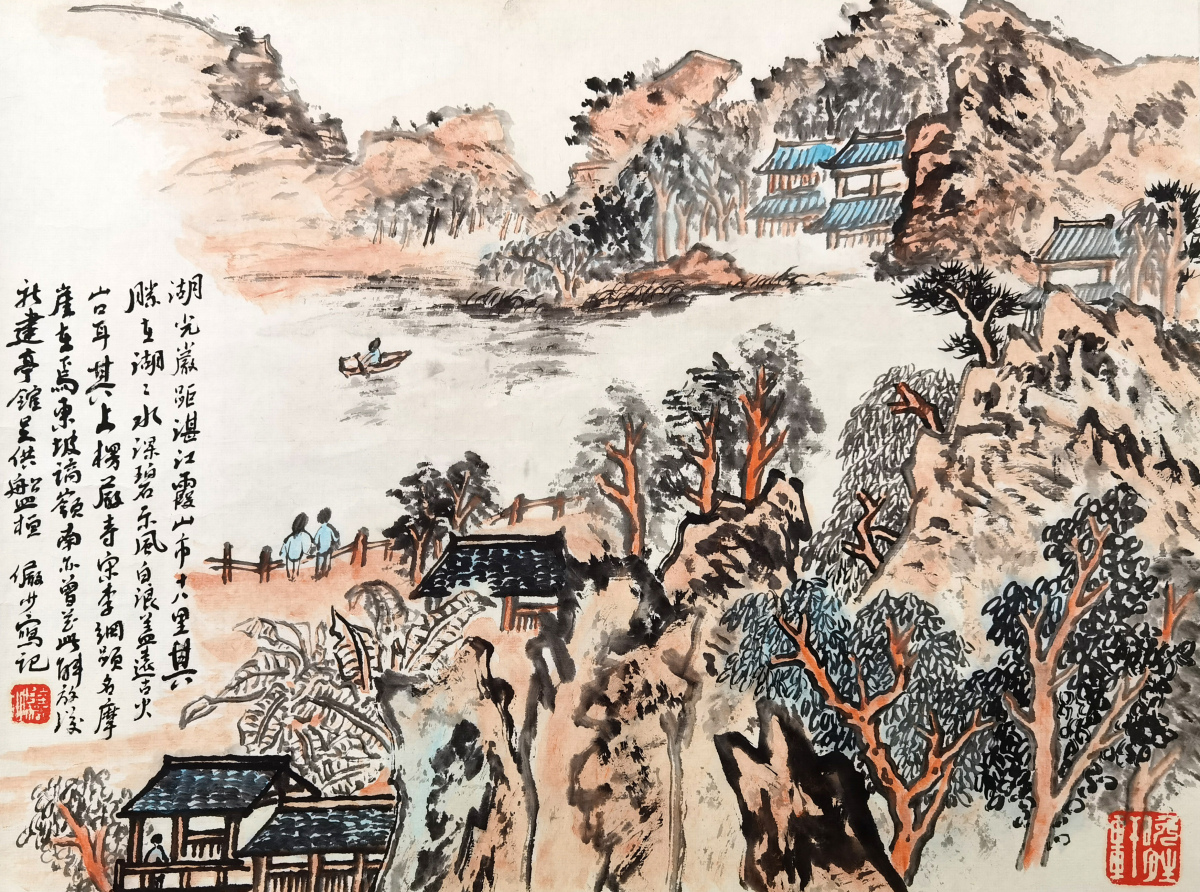 湖光巖距湛江霞山市十八里其
勝在湖〻水深碧風白浪盖遠古火
山口耳其上楞嚴寺宋李綱題名摩
崖在焉東坡謫嶺南亦曾蒞此解放後
新建亭館足供盤桓 儼少寫記